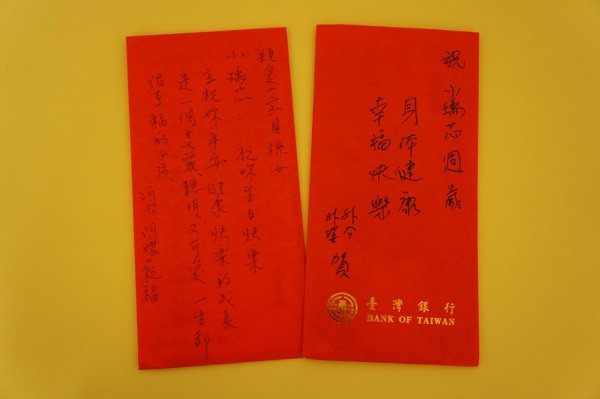 親愛的寶貝孫女
小瑀芯：祝妳生日快樂
並祝妳平安健康快樂的成長、
是一個美麗聰明又可愛、一生都
很幸福的女孩
阿公阿嬤祝福
祝小瑀芯週歲
身体健康
幸福快樂
外公
外婆
賀
臺灣銀行
BANK OF TAIWAN